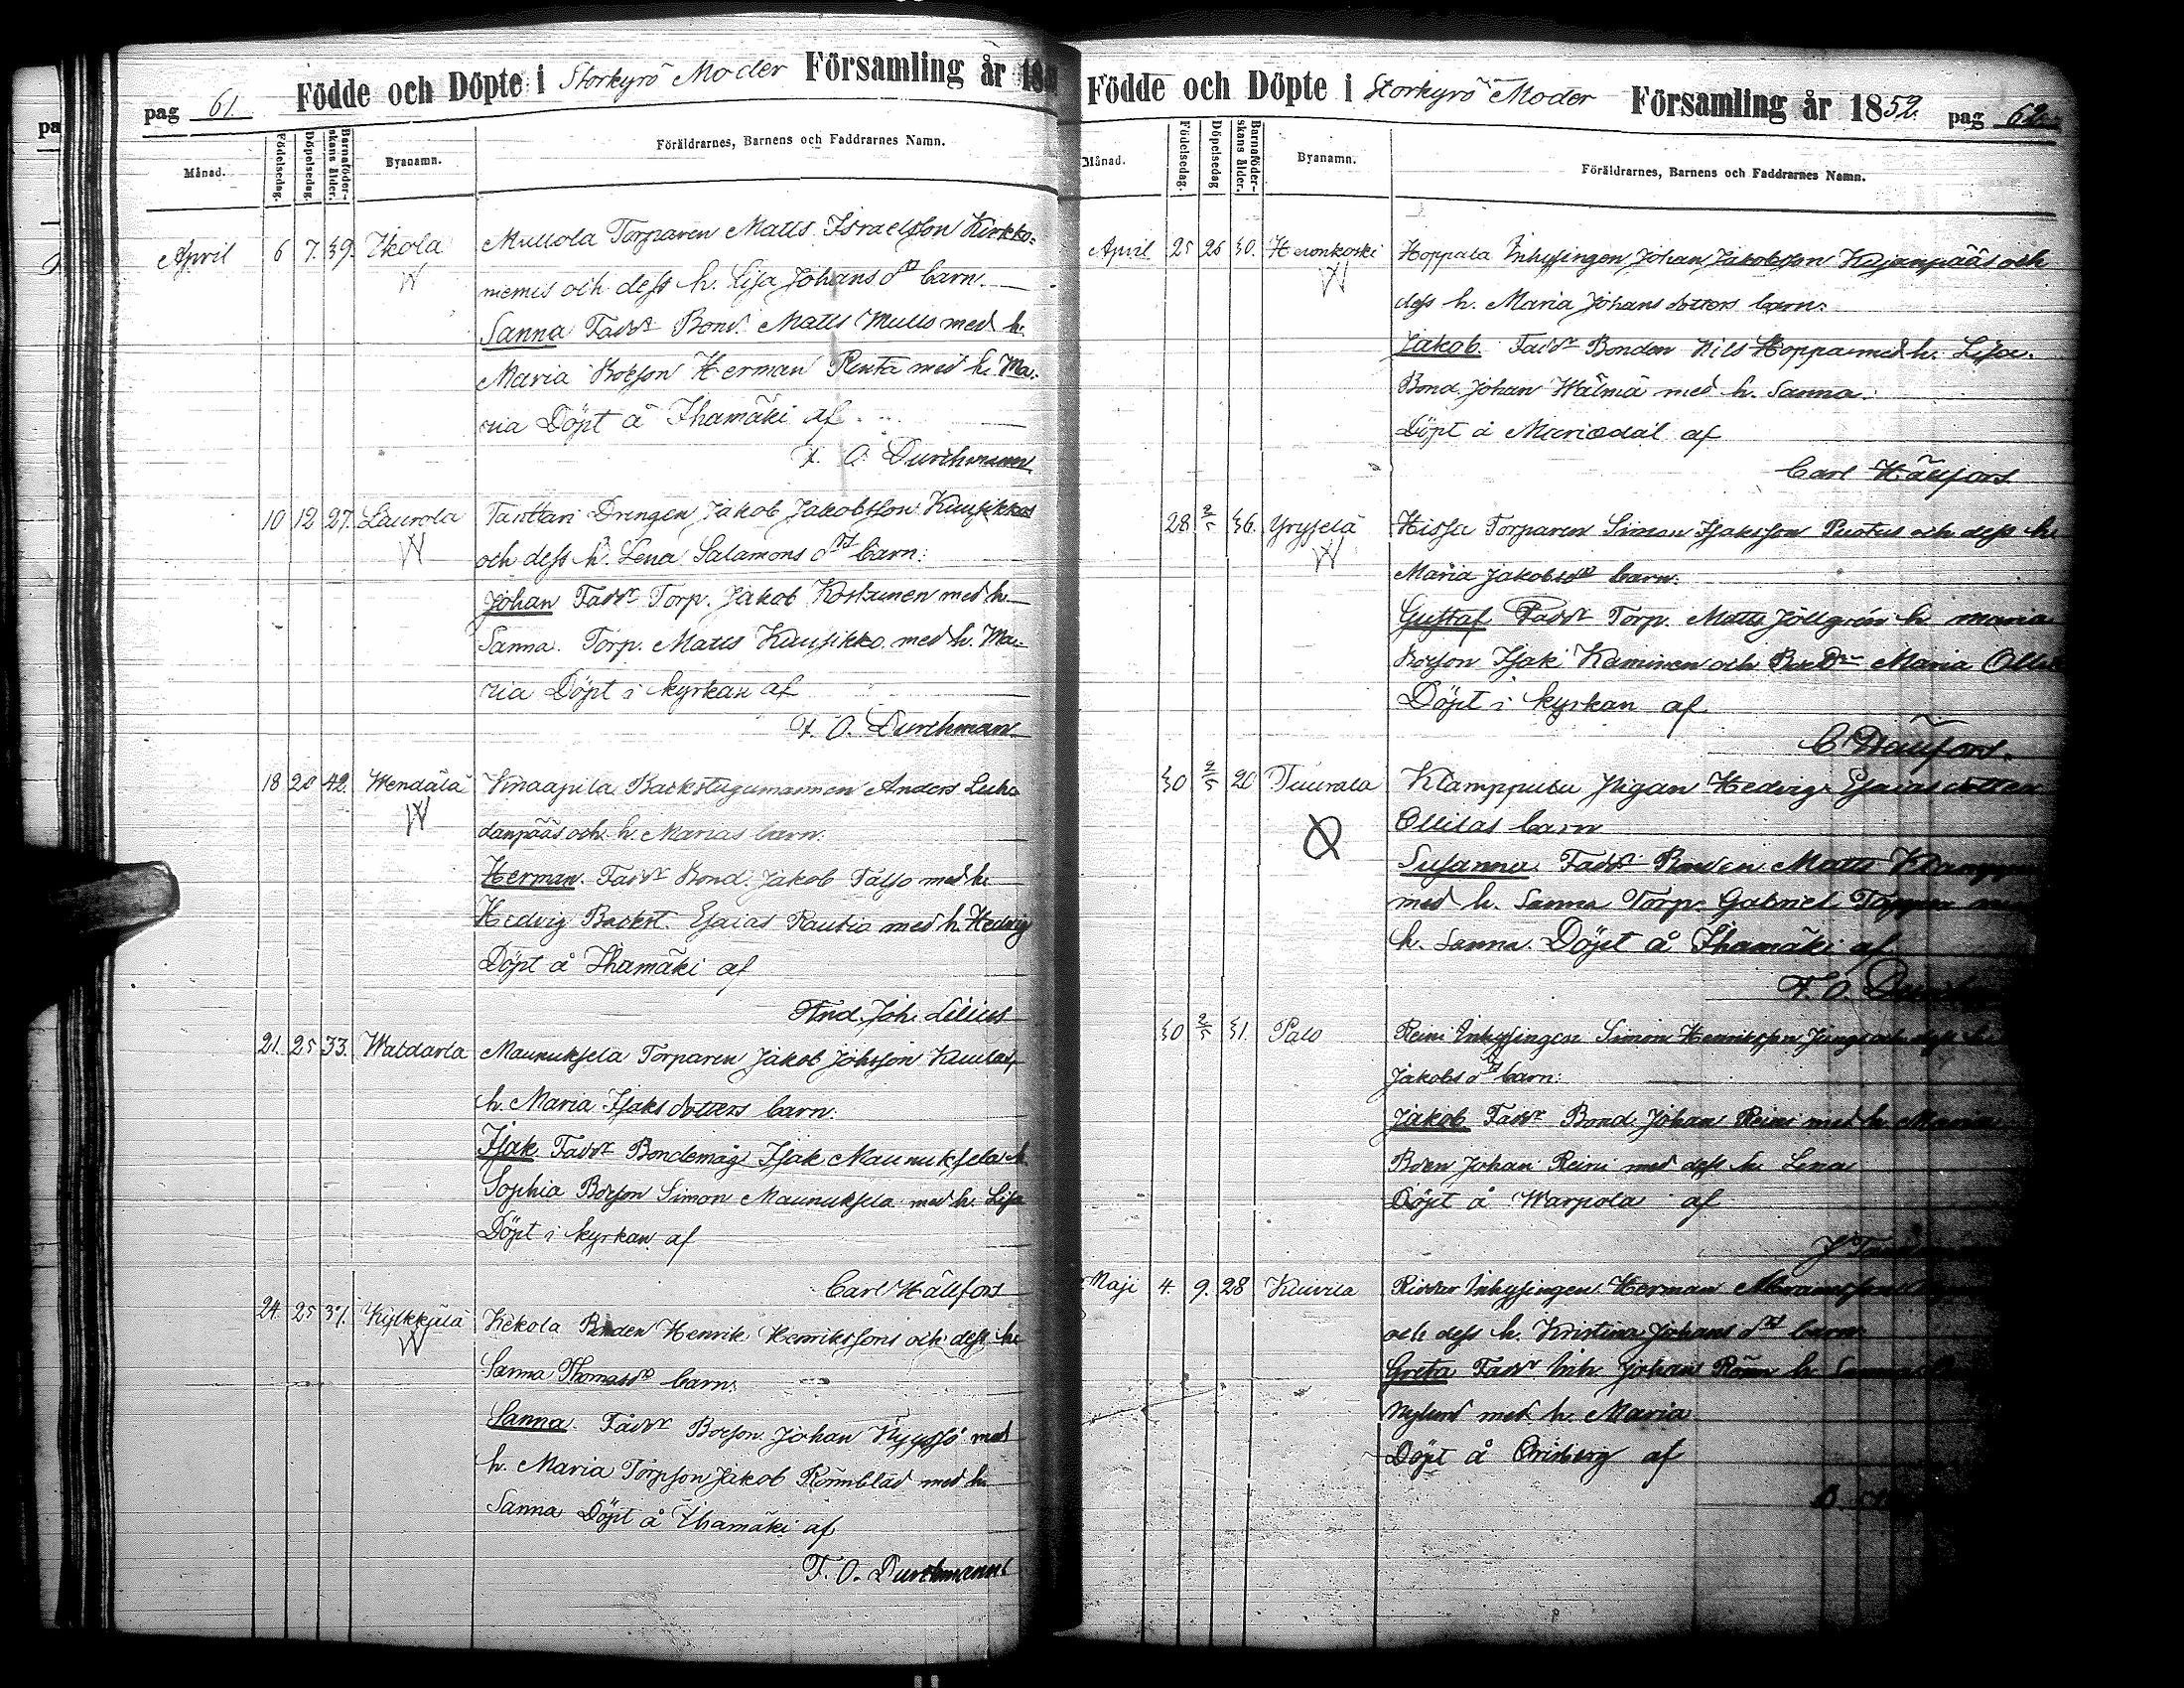 pag 61. Födde och Döpte i Storkyrö Moder Församling år 18
Månad. Födelsedag. Döpelsedag. Barnaföderskans ålder. Byanamn. Föräldrarnes, Barnens och Faddrarnes Namn.
April 6 7. 39. Ikola Mullola Torparen Matts Israelsson Kirkko=
niemis och dess h. Lisa Johans dr barn.
Sanna Faddr Bond. Matts Mullo med h.
Maria Boesson Herman Renta med h. Ma=
ria Döpt å Ihamäki af
F. O. Durchman
10 12 27. Laurola Tauttari Drengen Jakob Jakobsson Kuusikkos
W och dess h. Lena Salamons dr barn:
Johan Faddr Torp. Jakob Koskinen med h.
Sanna. Torp. Matts Kuusikko med h. Ma=
ria Döpt i kyrkan af
F. O. Durchman
18 20 42. Wendälä Knaapila Backstugumannen Anders Luho
W danpääs och h. Marias barn:
Herman. Faddr Bond. Jakob Talso med h.
Hedvig Backst. Esaias Rautio med h. Hedvig
Döpt å Ihamäki af
And. Joh. Lilius
21. 25 33. Waldarla Maunuksela Torparen Jakob Johsson
h. Maria Isaks dotters barn:
Isak Faddr Bondemåg Isak Maunuksela h.
Sophia Boesson Simon Maunuksela med h. Lisa
Döpt i kyrkan af
Carl Hällfors
24. 25 37. Kylkkälä Kekola Bonden Henrik Henrikssons och dess h.
W Sanna Thomasdr barn:
Sanna. Faddr Boesson Johan Nyyssö med
h. Maria Torpson Jakob Rönnblad med h.
Sanna Döpt å Ihamäki af
F. O. Durchman
Födde och Döpte i Storkyrö Moder Församling år 1852. pag 62.
Månad. Födelsedag. Döpelsedag Barnaföderskans ålder. Byanamn. Föräldrarnes, Barnens och Faddrarnes Namn.
April 25 26 30. Heronkoski Hoppala Inhysingen Johan Jakobsson Kujanpääs och
W dess h. Maria Johans dotters barn:
Jakob. Faddr Bonden Nils Hoppa med h. Lisa.
Bond. Johan Wälmä med h. Sanna.
Döpt å Mariedal af
Carl Hällfors
28 2/5 36. Yryselä Hissa Torparen Simon Isaksson Puotus och dess h.
W Maria Jakobsdr barn:
Gustaf Faddr Torp. Matts Jöllgrén h. Maria
Boesson Isak Kaminen och Maria
Döpt i kyrkan af
C. Hällfors.
30 2/5 20 Tuurala Klamppulu Pigan Hedvig Esaias dotter
Ollilas barn
Susanna Faddr Bonden Matts
med h. Sanna Torp. Gabriel
h. Sanna. Döpt å Ihamäki af
F. O.
30 2/5 31. Palo Reini Inhysingen Simon Henriksson och dess h.
Jakobs dr barn:
Jakob Faddr Bond. Johan Reini med h. Maria
Boen Johan Reini med dess h. Lena
Döpt å Warpola af
Maji 4. 9. 28 Kuivila Inhysingen Herman
och dess h. Kristina Johans dr barn:
Greta Faddr Inh. Johan h.
Nylund med h. Maria
Döpt å Orisberg af